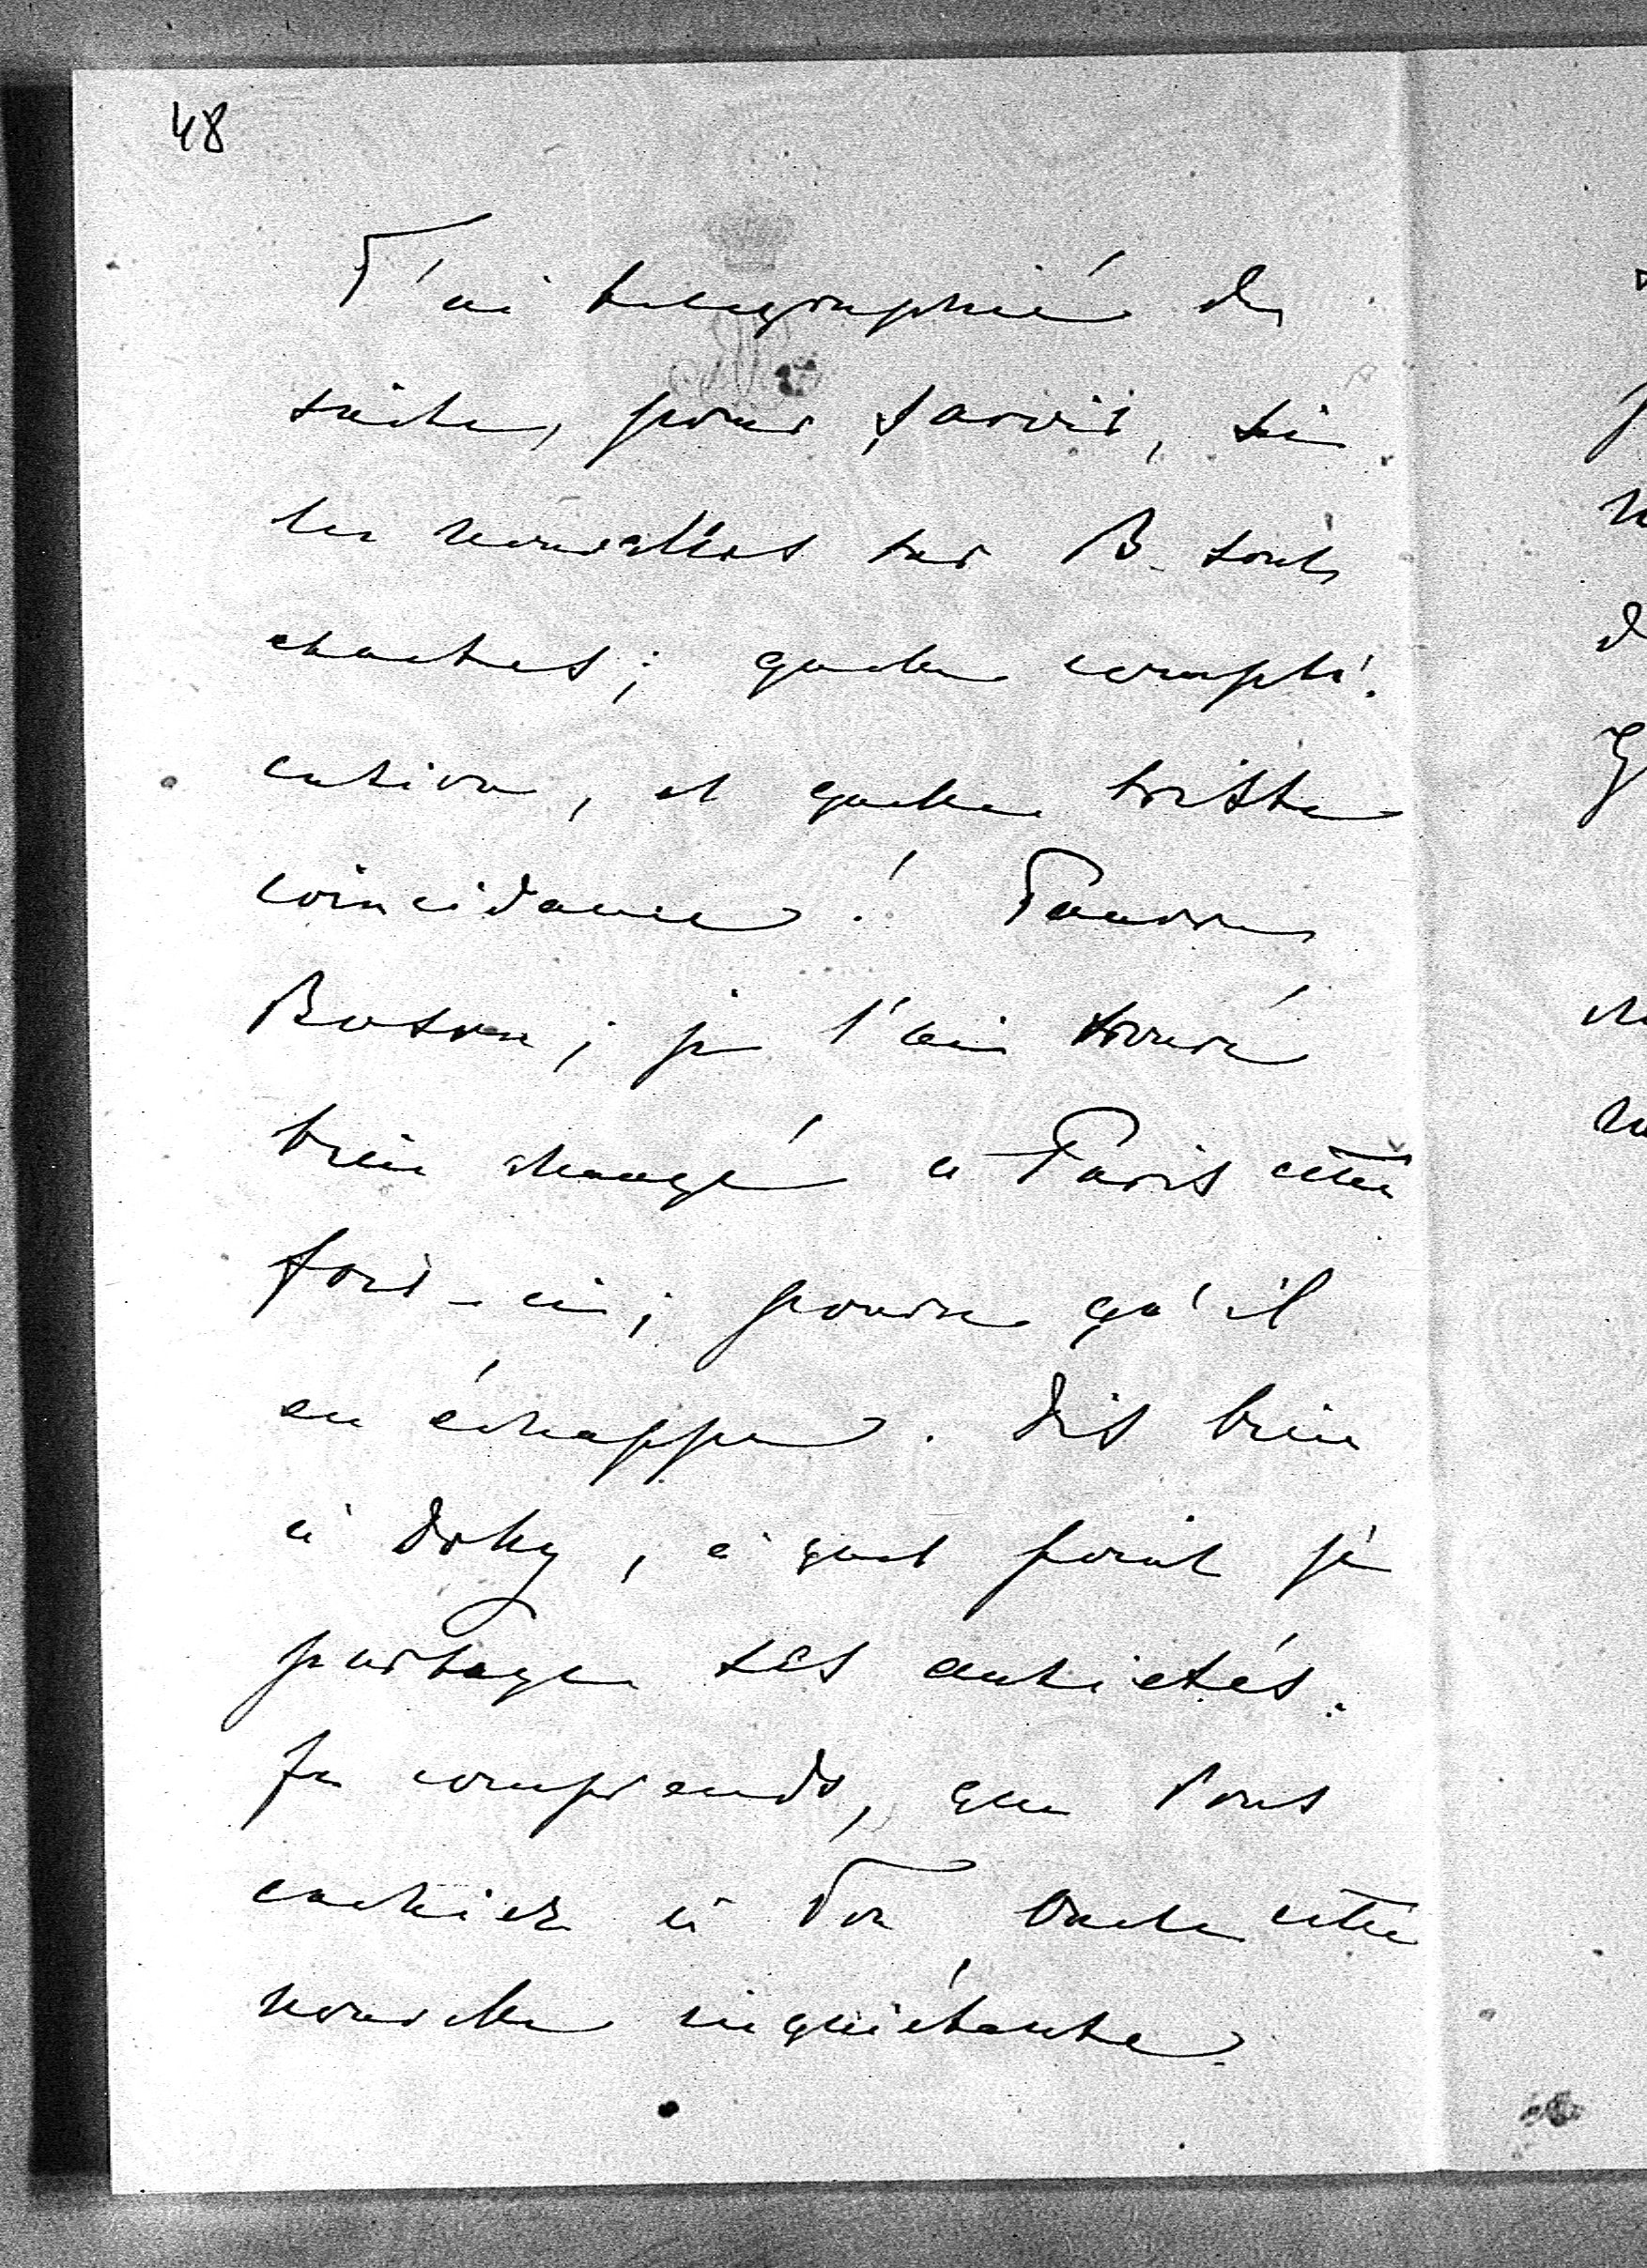 48
J'ai telegraphié de
suite, pour savoir, si
les nouvelles sur B. sont
exactes; quelle compli-
cation, et quelle triste
coincidance! Pauvre
Boson; je l'ai trouvé
bien changé a Paris cette
fois-ci; pourvu qu'il
en échappe. Dis bien
à Dolly, à quel point je
partage ses anxietés.
Je comprends, que Vous
cachiez à Ton Oncle cette
nouvelle inquiétante.